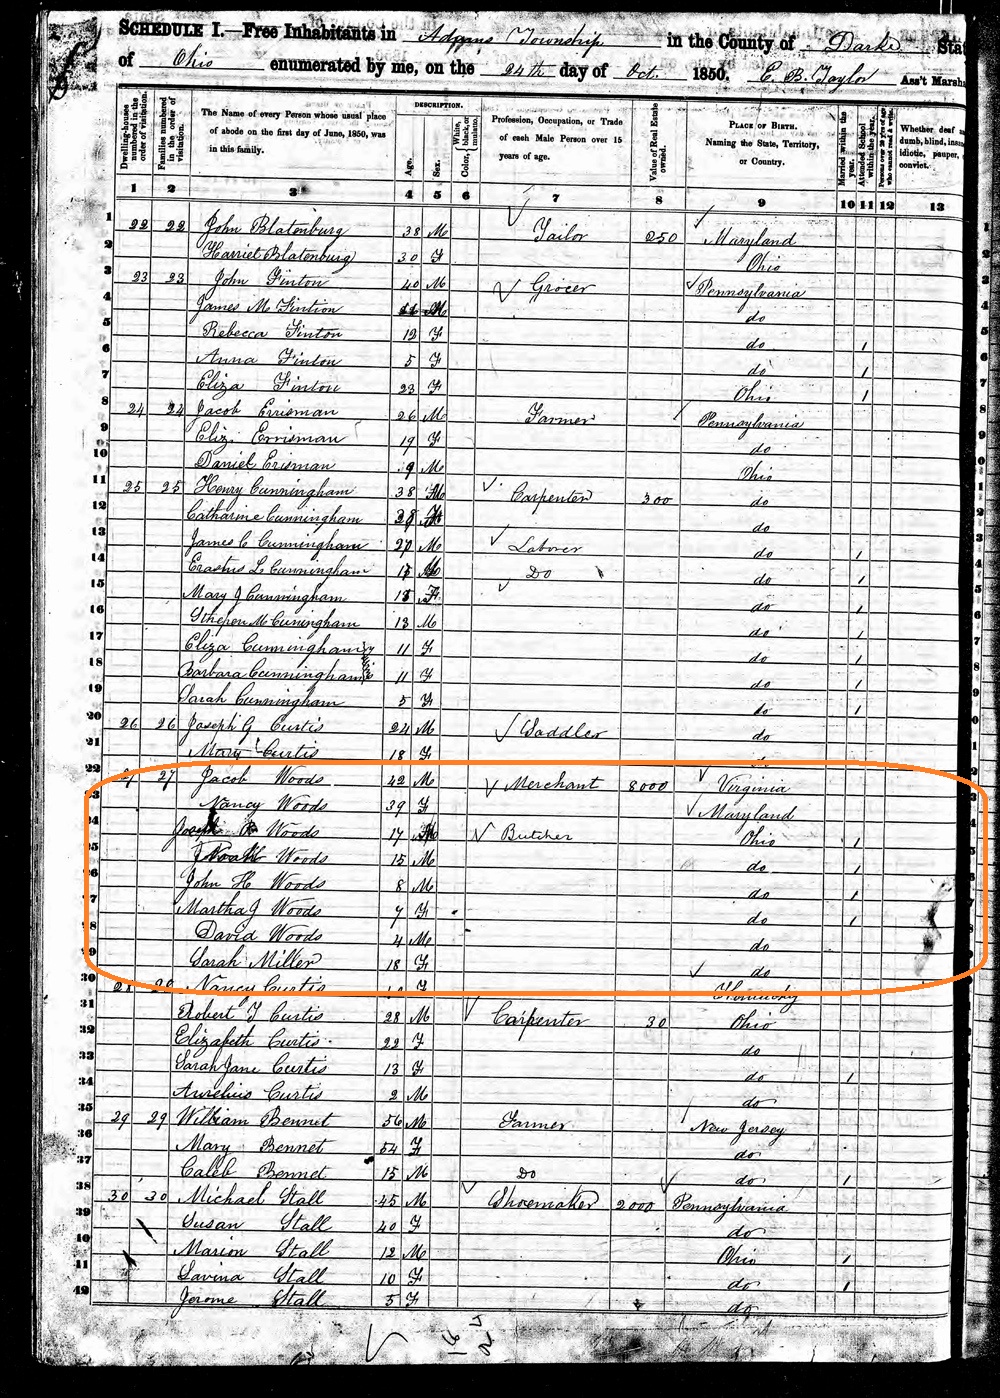 SCHEDULE I.—Free Inhabitants in Adams Township in the County of Darke State
of Ohio enumerated by me, on the 24th day of Oct. 1850. E. B. Taylor Ass't Marsh
Dwelling-houses numbered in the order of visitation.
Families numbered in the order of visitation.
The Name of every Person whose usual place of abode on the first day of June, 1850, was in this family.
DESCRIPTION.
Age.
Sex.
Color, White, black, or mulatto.
Profession, Occupation, or Trade of each Male Person over 15 years of age.
Value of Real Estate owned.
PLACE OF BIRTH. Naming the State, Territory, or Country.
Married within the year.
Attended School within the year.
Persons over 20 y'rs of age who cannot read & write.
Whether deaf dumb, blind, insa idiotic, pauper, convict.
1 2 3 4 5 6 7 8 9 10 11 12 13
1 22 22 John Blatenburg 38 M Tailor 250 Maryland
2 Harriet Blatenburg 30 F Ohio
3 23 23 John Finton 40 M Grocer Pennsylvania
4 James M Fintion M do
5 Rebecca Finton 12 F do 1
6 Anna Finton 5 F do 1
7 Eliza Finton 23 F Ohio 1
8 24 24 Jacob Errisman 26 M Farmer Pennsylvania
9 Eliz. Errisman 19 F do
10 Daniel Erisman 9 M Ohio
11 25 25 Henry Cunningham 38 M Carpenter 300 do
12 Catharine Cunningham F do
13 James C Cunningham M Laborer do 1
14 Erastus L Cunningham M Do do 1
15 Mary J Cunningham F do 1
16 Sthepen M Cuningham 13 M do 1
17 Eliza Cunningham 11 F do 1
18 Barbara Cunningham 11 F do 1
19 Sarah Cunningham 5 F do 1
20 26 26 Joseph G Curtis 24 M Saddler do
21 Mary Curtis 18 F do
22 27 Jacob Woods 42 M Merchant 8000 Virginia
23 Nancy Woods 39 F Maryland
24 Joseph R Woods 17 M Butcher Ohio 1
25 Woods 15 M do 1
26 John H Woods 8 M do 1
27 Martha J Woods 7 F do 1
28 David Woods 4 M do
29 Sarah Miller 18 F do
30 28 28 Nancy Curtis F Kentucky
31 Robert T Curtis 28 M Carpenter 30 Ohio
32 Elizabeth Curtis 22 F do
33 Sarah Jane Curtis 13 F do 1
34 Aurelius Curtis 2 M do
35 29 29 William Bennet 56 M Farmer New Jersey
36 Mary Bennet 54 F do
37 Caleb Bennet 15 M Do do 1
38 30 30 Michael Stall 45 M Shoemaker 2000 Pennsylvania
39 Susan Stall 40 F do
40 Marion Stall 12 M Ohio 1
41 Lavina Stall 10 F do 1
42 Jerome Stall 5 F do